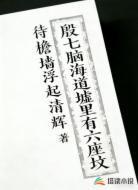 殷七脑海道墟里有六座坟
待檐墙浮起清辉 著
塔读小说